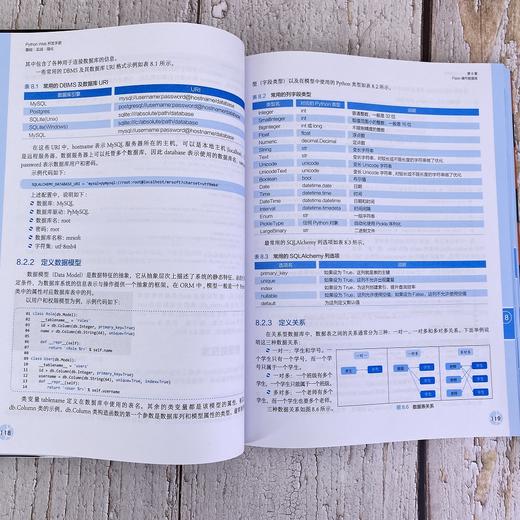 Python Web 开发手册
基础·实战·强化
其中包含了各种用于连接数据库的信息。
一些常用的 DBMS 及其数据库 URI 格式示例如表 8.1 所示。
表 8.1 常用的 DBMS 及数据库 URI
数据库引擎 URI
MySQL mysql://username:password@hostname/database
Postgres postgresql://username:password@hostname/database
SQLite(Unix) sqlite:////absolute/path/database
SQLite(Windows) sqlite:///c:/absolute/path/database
MySQL mysql://username:password@hostname/database
在这些 URI 中，hostname 表示 MySQL 服务器所在的主机，可以是本地主机(localhost)
是远程服务器。数据服务器上可以托管多个数据库，因此 database 表示使用的数据库名，username
password 表示数据库用户和密码。
示例代码如下：
上述配置中，说明如下：
数据库：MySQL
数据库驱动：PyMySQL
数据库名：root
密码：root
数据库名称：mrsoft
字符集：utf-8mb4
8.2.2 定义数据模型
数据模型（Data Model）是数据特征的抽象，它从抽象层次上描述了系统的静态特征、动态行
定条件，为数据库系统的信息表示与操作提供一个抽象的框架。在 ORM 中，模型一般是一个 Python
类中的属性对应数据库表中的列。
以用户和权限模型为例，示例代码如下：
01 class Role(db.Model):
02 __tablename__ = 'roles'
03 id = db.Column(db.Integer, primary_key=True)
04 name = db.Column(db.String(64), unique=True)
05
06 def __repr__(self):
07 return '<Role %r>' % self.name
08
09 class User(db.Model):
10 __tablename__ = 'users'
11 id = db.Column(db.Integer, primary_key=True)
12 username = db.Column(db.String(64), unique=True, index=True)
13
14 def __repr__(self):
15 return '<User %r>' % self.username
类变量 tablename 定义在数据库中使用的表名。其余的类变量都是该模型的属性，
db.Column 类的示例。db.Column 类构造函数的第一个参数是数据库列和模型属性的类型，
118
第 8 章
Flask 操作数据库
型（字段类型）以及在模型中使用的 Python 类型如表 8.2 所示。
表 8.2 常用的列字段类型
类型名 对应的 Python 类型 说明
Integer int 普通整数，一般是 32 位
SmallInteger int 取值范围小的整数，一般是 16 位
BigInteger int 或 long 不限制精度的整数
Float float 浮点数
Numeric decimal.Decimal 定点数
String str 变长字符串
Text str 变长字符串，对较长或不限长度的字符串做了优化
Unicode unicode 变长 Unicode 字符串
UnicodeText unicode 变长 Unicode 字符串，对较长或不限长度的字符串做了优化
Boolean bool 布尔值
Date datetime.date 日期
Time datetime.time 时间
DateTime datetime.datetime 日期和时间
Interval datetime.timedelta 时间间隔
Enum str 一组字符串
PickleType 任何 Python 对象 自动使用 Pickle 序列化
LargeBinary str 二进制文件
最常用的 SQLAlchemy 列选项如表 8.3 所示。
表 8.3 常用的 SQLAlchemy 列选项
选项名 说明
primary_key 如果设为 True，这列就是表的主键
unique 如果设为 True，这列不允许出现重复
index 如果设为 True，为这列创建索引，提升查询效率
nullable 如果设为 True，这列允许使用空值；如果设为 False，这列不允许使用空值
default 为这列定义默认值
8
8.2.3 定义关系
在关系型数据库中，数据表之间的关系通常分为三种：一对一、一对多和多对多关系。下面举例说
明这三种数据关系：
一对一：学生和学号，一
个学生只有一个学号，而一个学
号只属于一个学生。
一对多：一个班级有多个
学生，一个学生只能属于一个班级。
多对多：一个学生有多个老
师，而一个学生也要多个老师。
三种数据关系如图 8.6 所示。
一对一 一对多 多对多
图 8.6 数据表关系
119